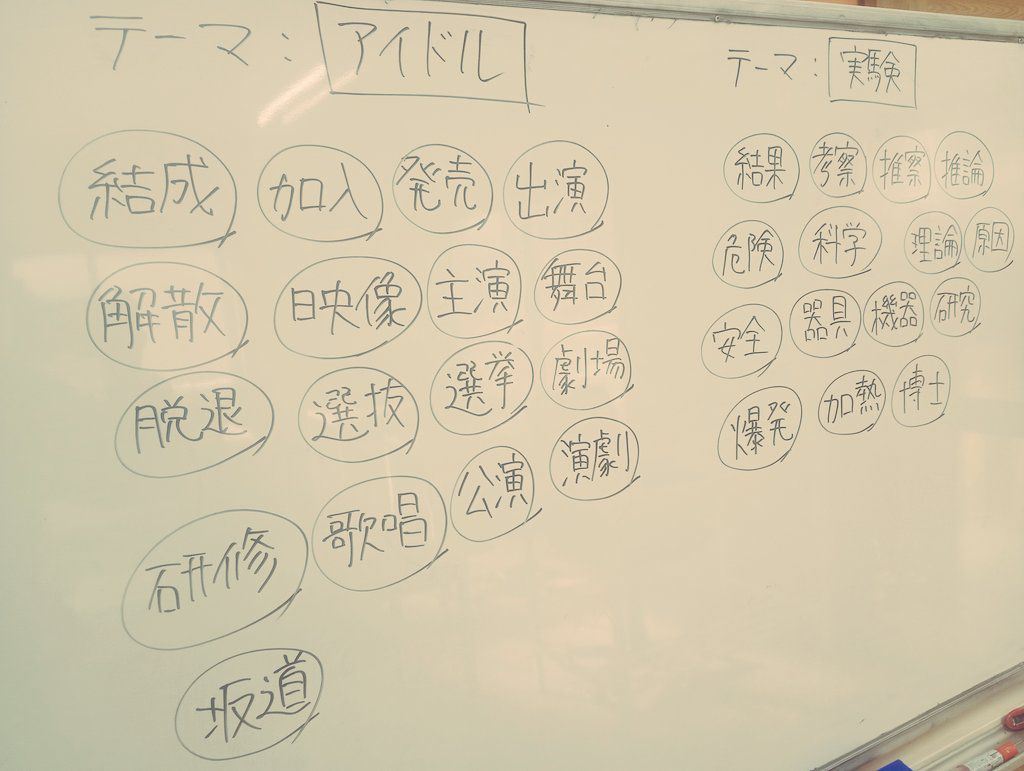 テーマ：アイドル
結成 加入 発売 出演
解散 映像 主演 舞台
脱退 選抜 選挙 劇場
研修 歌唱 公演 演劇
坂道
テーマ：実験
結果 考察 推察 推論
危険 科学 理論 原因
安全 器具 機器 研究
爆発 加熱 博士